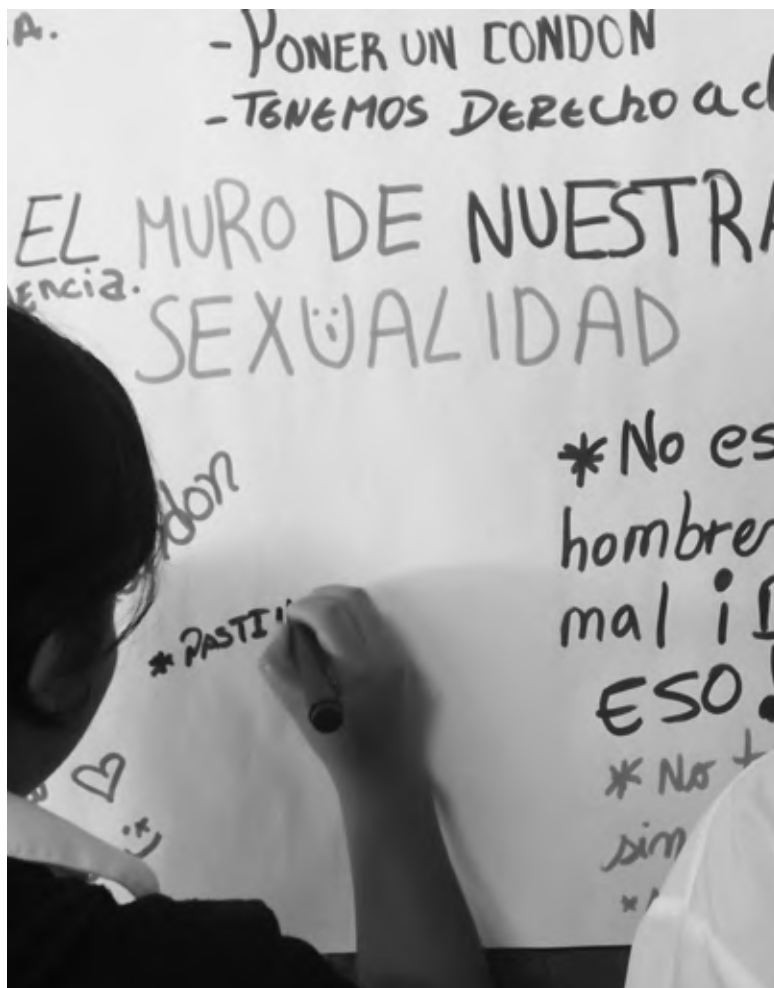 A.
- PONER UN CONDON
- TENEMOS DERECHO a
EL MURO DE NUESTRA
encia.
SEXUALIDAD
don
* No es
hombre
* PASTI
mal ¡
ESO!
* No
sin
*